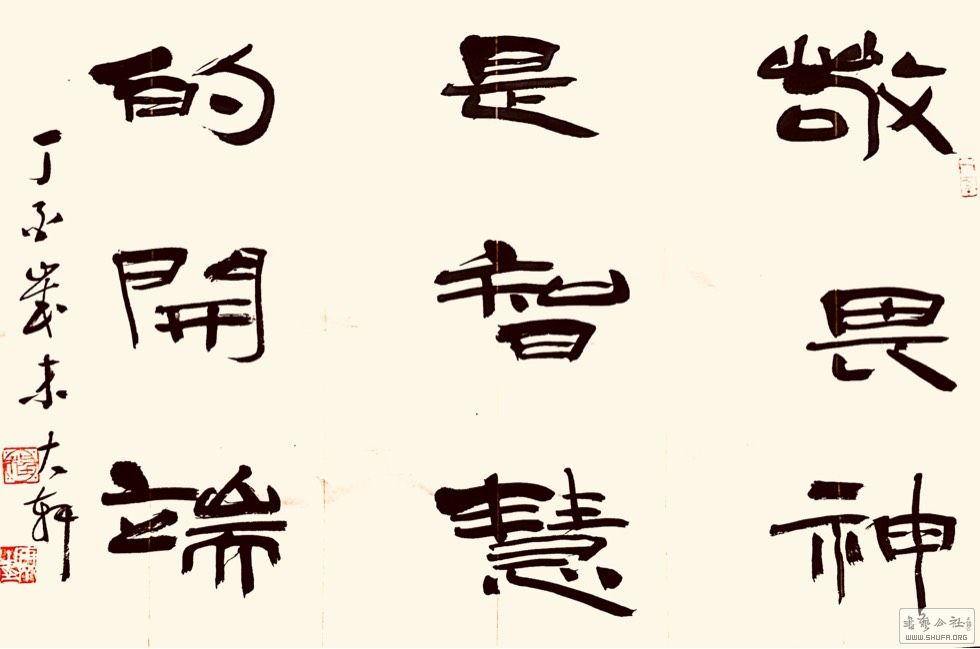 敬畏神
是智慧
的開端
丁亥歲末大軒
书艺公社
WWW.SHUFA.ORG